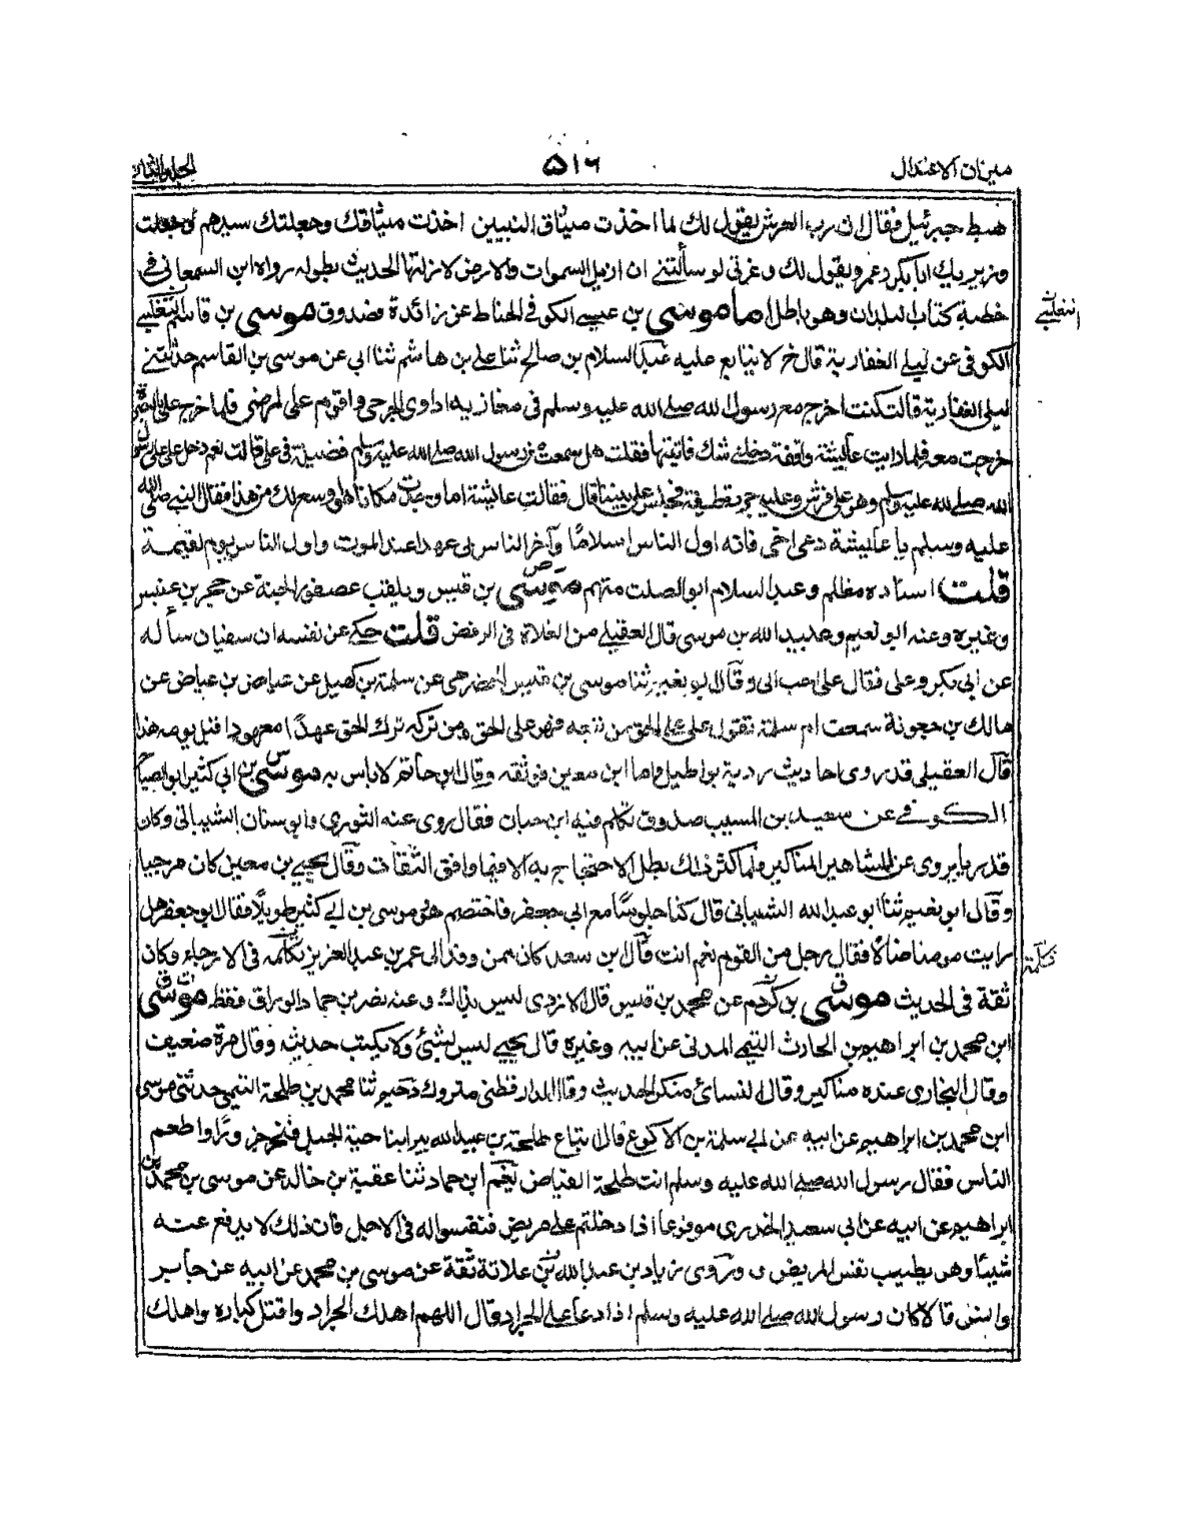 ميزان الاعتدال
٥١٦
الجلد الثاني
هبط جبرئيل فقال ان رب العرش يقول لك لما اخذت ميثاق النبيين اخذت ميثاقك وجعلتك سيدهم وجعلت
وزيريك ابا بكر وعمر ويقول لك وعزتي لو سألتني ان ازيل السموات والارض لازلتها الحديث بطوله رواه ابن السمعاني في
خطبة كتاب البلدان وهو باطل اما موسى بن عيسى الكوفي الحناط عن زائدة فصدوق موسى بن قاسم التغلبي
الثعلبي
الكوفي عن ليلى الغفارية قال خ لا يتابع عليه عبد السلام بن صالح ثنا علي بن هاشم ثنا ابي عن موسى بن القاسم حدثتني
ليلى الغفارية قالت كنت اخرج مع رسول الله صلى الله عليه وسلم في مغازيه اداوى الجرحى واقوم على المرضى فلما خرج علي بالبصرة
خرجت معه فلما رايت عائشة واقفة دخلني شك فاتيتها فقلت هل سمعت من رسول الله صلى الله عليه وسلم فضيلة في علي قالت نعم دخل علي على رسول
الله صلى الله عليه وسلم وهو على فرش وعليه جرد قطيفة فجلس علي بيننا قال فقالت عائشة اما وجدت مكانا هو اوسع لك من هذا فقال النبي صلى الله
عليه وسلم يا عائشة دعى اخى فانه اول الناس اسلاما وآخر الناس بي عهدا عند الموت واول الناس يوم القيمة
قلت اسناده مظلم وعبد السلام ابو الصلت متهم موسى بن قيس ويلقب عصفور الجنة عن حجر بن عنبس
وغيره وعنه ابو نعيم وعبيد الله بن موسى قال العقيلي من الغلاة في الرفض قلت حكى عن نفسه ان سفيان سأله
عن ابي بكر وعلي فقال علي احب الى وقال ابو نعيم ثنا موسى بن قيس الحضرمي عن سلمة بن كهيل عن عياض بن عياض عن
مالك بن جعونة سمعت ام سلمة تقول علي على الحق من تبعه فهو على الحق ومن تركه ترك الحق عهدا معهودا قبل يومه هذا
قال العقيلي قد روى احاديث ردية بواطيل واما ابن معين فوثقه وقال ابو حاتم لا باس به موسى بن ابي كثير ابو الصباح
الكوفي عن سعيد بن المسيب صدوق تكلم فيه ابن حبان فقال روى عنه الثوري وابو سنان الشيباني وكان
قدريا يروى عن المشاهير المناكير ولما كثر ذلك بطل الاحتجاج به الا فيما وافق الثقات وقال يحيى بن معين كان مرجيا
وقال ابو نعيم ثنا ابو عبد الله الشيباني قال كنا جلوسا مع ابي جعفر فاختصم هو وموسى بن ابي كثير طويلا فقال ابو جعفر هل
رايت مومنا ضالا فقال رجل من القوم نعم انت قال ابن سعد كان ممن وفد الى عمر بن عبد العزيز تكلمه في الارجاء وكان
تكلمة
ثقة في الحديث موسى بن كردم عن محمد بن قيس قال الازدي ليس بذاك وعنه نصر بن حماد الوراق فقط موسى
ابن محمد بن ابراهيم بن الحارث التيمي المدني عن ابيه وغيره قال يحيى ليس بشئ ولا يكتب حديثه وقال مرة ضعيف
وقال البخاري عنده مناكير وقال النسائي منكر الحديث وقال الدارقطني متروك دحيم ثنا محمد بن طلحة التيمي حدثني موسى
ابن محمد بن ابراهيم عن ابيه عن ابي سلمة بن الاكوع قال ابتاع طلحة بن عبيد الله بيرا بناحية الجبل فنحر جزورا واطعم
الناس فقال رسول الله صلى الله عليه وسلم انت طلحة الفياض نعيم ابن حماد ثنا عقبة بن خالد عن موسى بن محمد بن
ابراهيم عن ابيه عن ابي سعيد الخدري مرفوعا اذا دخلتم على مريض فنفسوا له في الاجل فان ذلك لا يدفع عنه
شيئا وهو يطيب نفس المريض وروى زياد بن عبد الله بن علاثة ثقة عن موسى بن محمد عن ابيه عن جابر
وانس قالا كان رسول الله صلى الله عليه وسلم اذا دعا على الجراد قال اللهم اهلك الجراد واقتل كباره واهلك